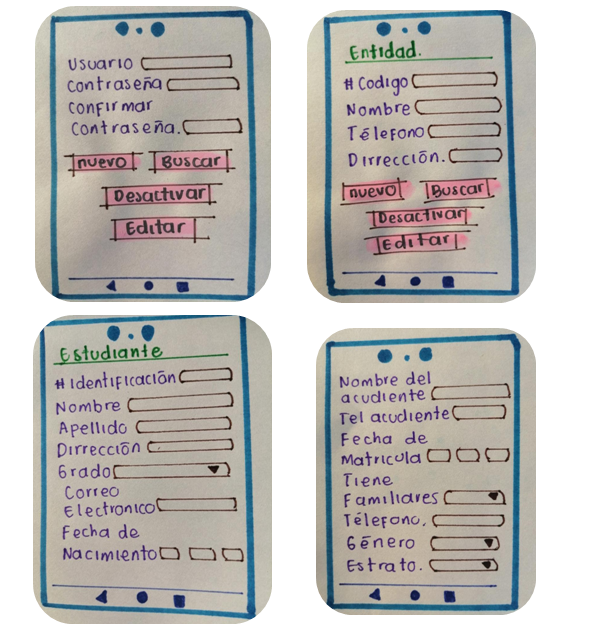 Usuario
Contraseña
Confirmar
Contraseña.
nuevo Buscar
Desactivar
Editar
Entidad.
# Codigo
Nombre
Télefono
Dirrección.
nuevo Buscar
Desactivar
Editar
Estudiante
# Identificación
Nombre
Apellido
Dirrección
Grado
Correo
Electronico
Fecha de
Nacimiento
Nombre del
acudiente
Tel acudiente
Fecha de
Matricula
Tiene
Familiares
Télefono.
Género
Estrato.